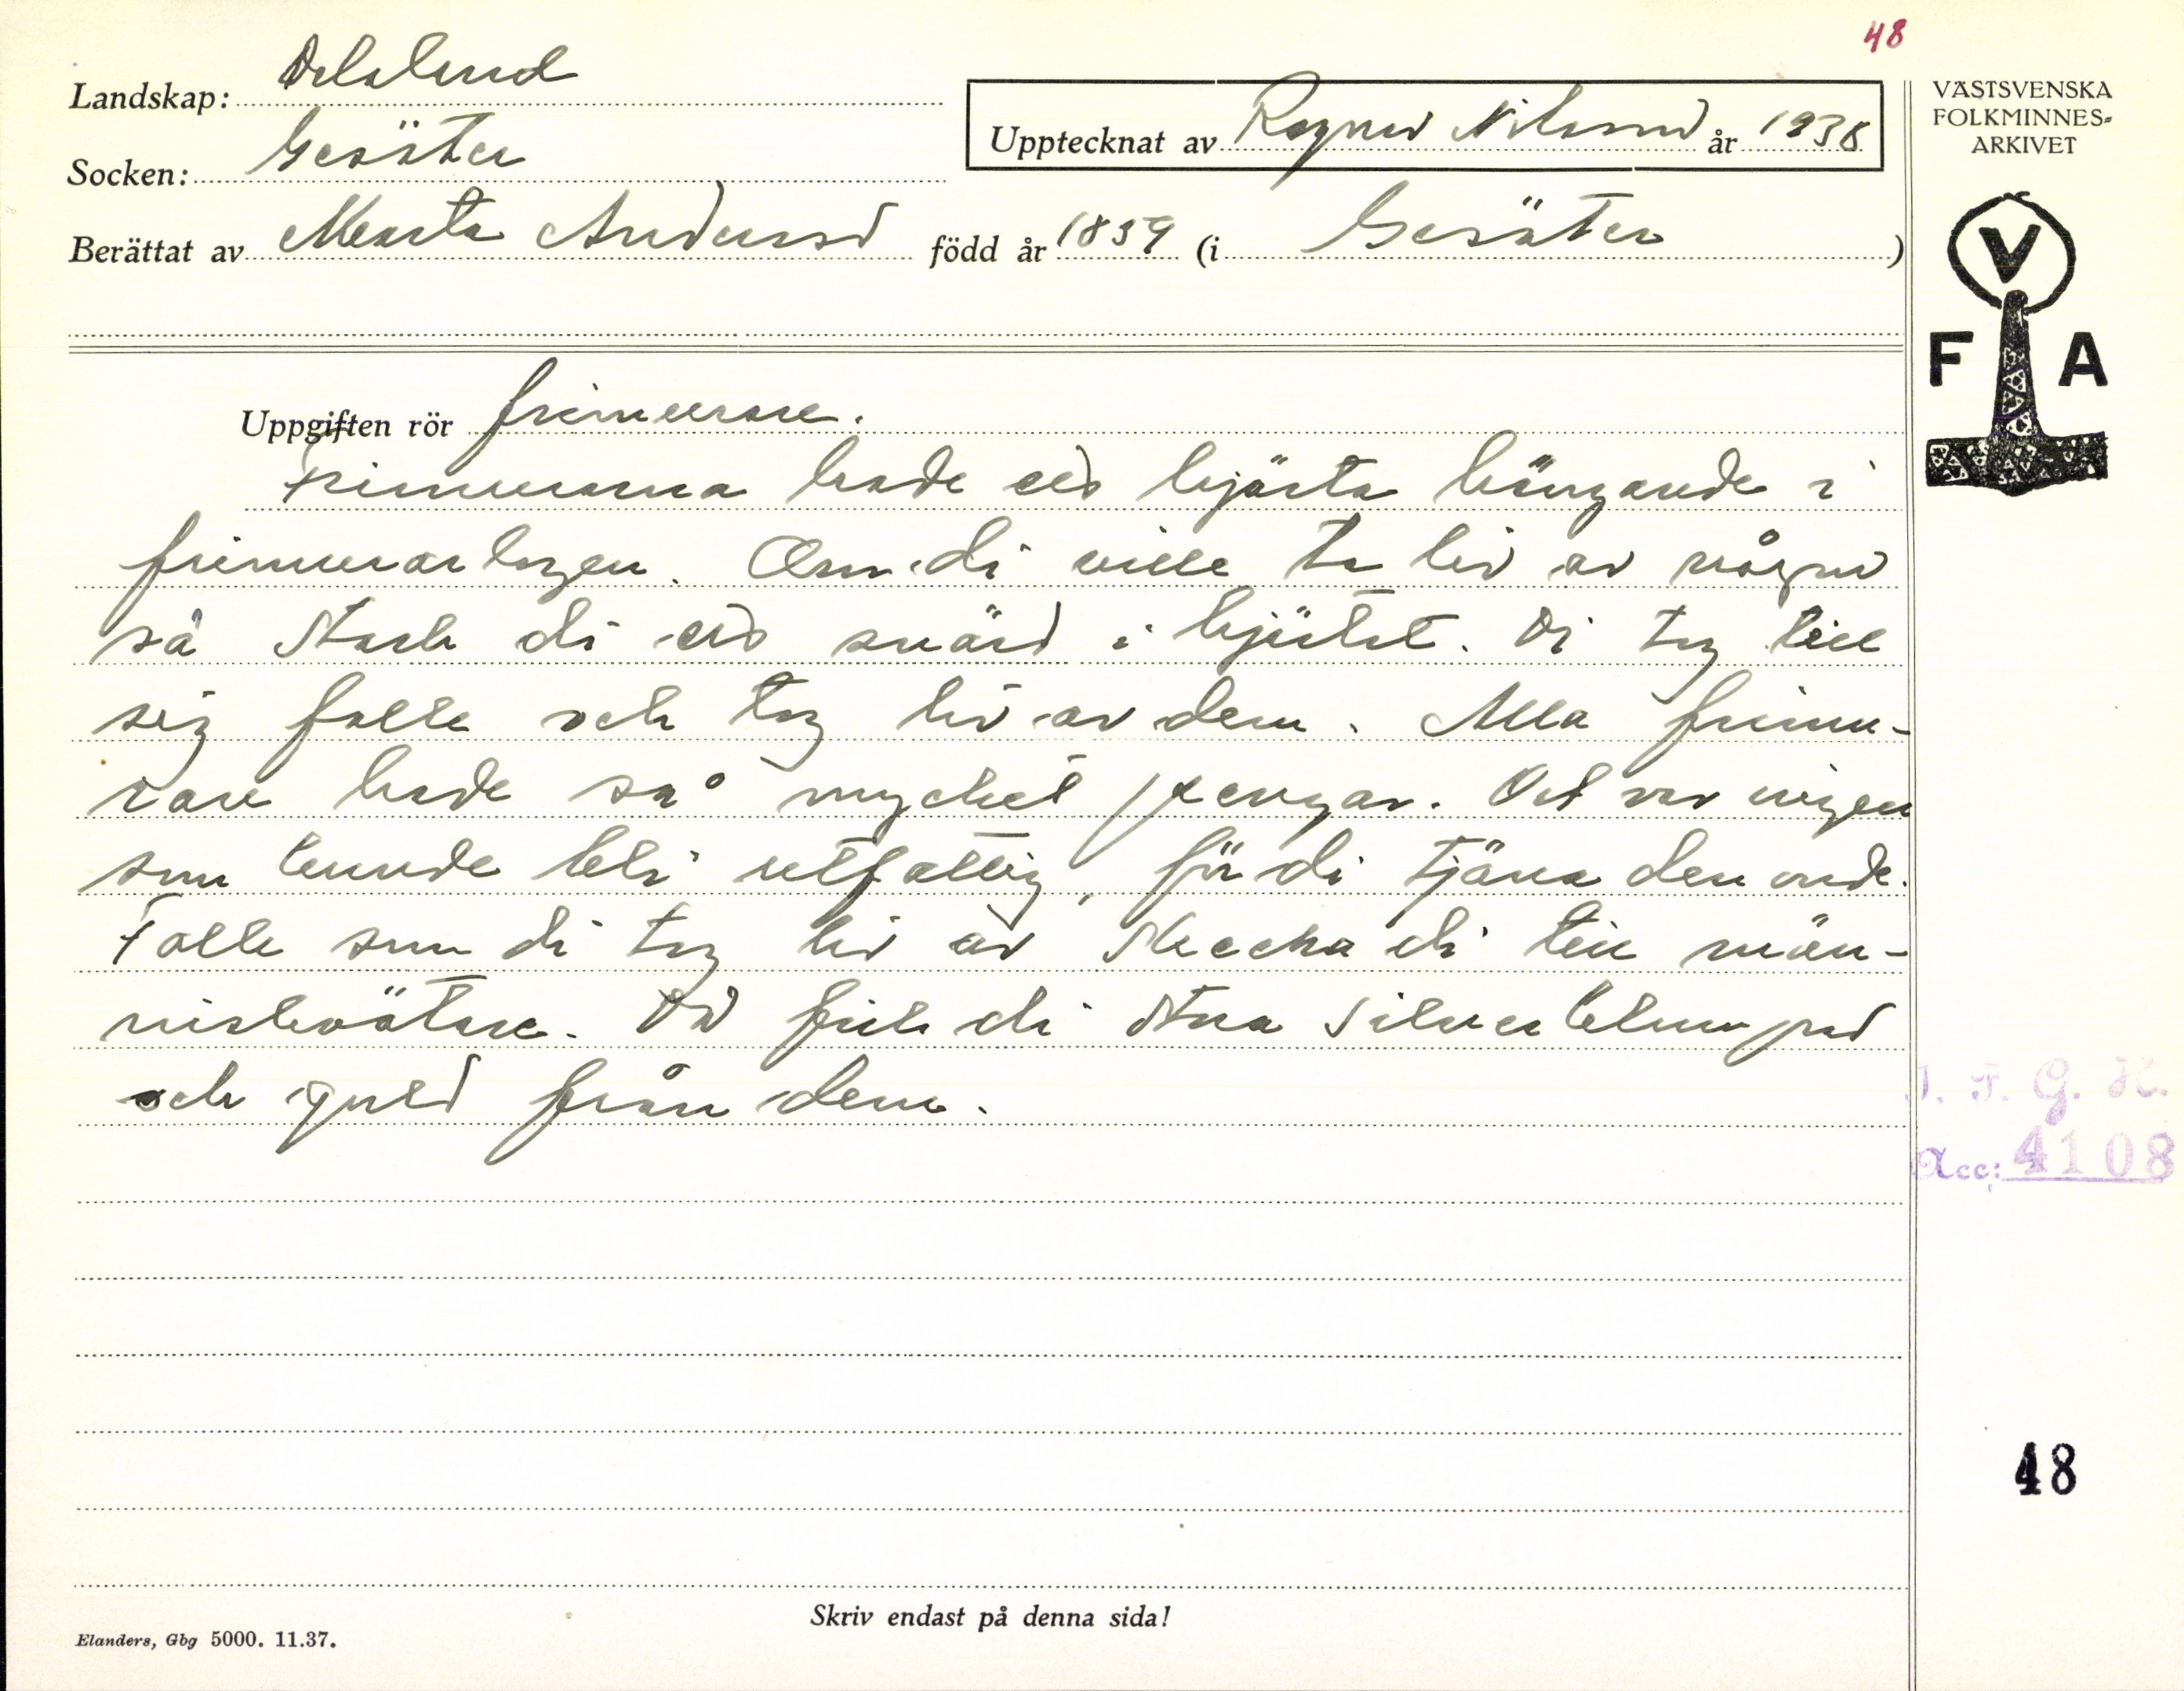 48
Landskap: Dalsland
Socken: Gesäter
Upptecknat av Ragnar Nilsson år 1938
Berättat av Marta Andersson född år 1839 (i Gesäter)
VÄSTSVENSKA
FOLKMINNES-
ARKIVET
V
F A
Uppgiften rör frimurare.
Frimurarna hade ett hjärta hängande i
frimurarlogen. Om di ville ta liv av någon
så stack di ett svärd i hjärtat. Di tog till
sig folk och tog liv av dem. Alla frimu-
rare hade så mycket pengar. Det var ingen
som kunde bli utfattig, för di tjäna den onde.
Folk som di tog liv av skecka di till män-
niskoätare. Då fick di stora silverklumpar
och guld från dem.
I. F. G. H.
Acc: 4108
48
Skriv endast på denna sida!
Elanders, Gbg 5000. 11.37.